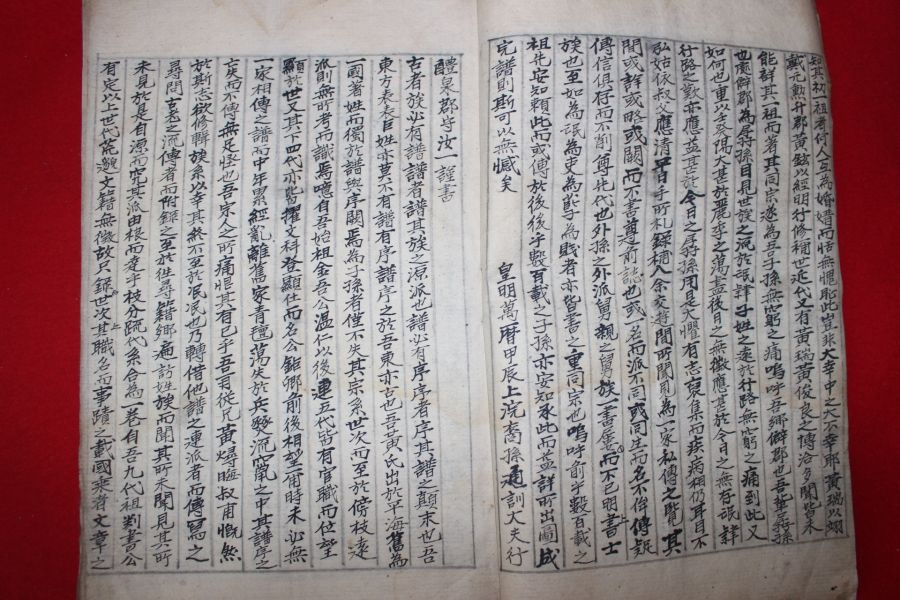 知其初一祖者何人互為婚媾而恬無愧恥此豈非大幸中之大不幸耶黃瑞以翊
戴元勳升郡黃鉉以經明行修稱世近代又有黃瑞黃後良之傳洽多聞皆未
能詳其一祖而著其同宗遂為吾子孫無窮之痛嗚呼吾鄉僻郡也吾輩孱孫
也處僻郡為孱孫目見世族之泯於氓隸子姓之遠於行路無窮之痛到此又
如何也重以壬癸陽大甚於麗季之萬盡後日之無徵應甚於今日之無存氓隸
行路之歎亦應益甚於今日之孱孫用是大懼有志裒集而疾病相仍耳目不
弘姑依叔父應清昔日手所札錄補入余交遊間所聞見為一家私傳之覽其
間或詳或略或闕而不書遵前誌也或一名而派不同或同生而名不侔傳疑
傳信俱存而不削尊先代也外孫之外派舅親之舅族一書而不已明士
族也至如為氓為吏為能為賤者亦皆書之重同宗也嗚呼前乎數百載之
祖先安知賴此而或傳於後後乎數百載之子孫亦安知承此而益詳所出圖成
完譜則斯可以無憾矣 皇明萬曆甲辰上浣裔孫通訓大夫行
醴泉郡守汝一謹書
古者族必有譜譜者譜其族之源派也譜必有序序者序其譜之顛末也吾
東方表表巨姓亦莫不有譜有序譜序之於吾東亦古也吾黃氏出於平海舊為
一國著姓而獨於譜與序闕焉為子孫者僅不失其宗系世次而至於傍枝遠
派則無所考而識焉噫自吾始祖金吾公溫仁以後連五代皆有官職而位望
顯於世又其下四代亦皆擢文科登顯仕而名公鉅卿前後相望甫時未必無
一家相傳之譜而中年累經亂離舊家青氈蕩失於兵燹流竄之中其譜序之
亡失而不傳無足怪也吾宗人之所痛恨其有已乎吾再從兄黃燖晦叔甫慨然
於斯志欲修輯族系以幸其終不至於泯泯也乃轉借他譜之連派者而傳寫之
尋問古老之流傳者而附錄之至於往尋籍鄉遍訪姓族而聞其所未聞見其所
未見於是自源而究其派由根而達乎枝分疏代系合為一卷自吾九代祖判書公
有定以上世代荒邈文籍無徵故只錄世次其職名而事蹟之載國乘者文章之